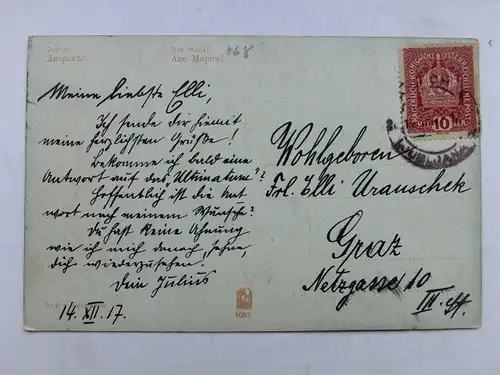 Dvořák:
Дворжакъ:
Ave Maria!
Аве Мариа!
468
Meine liebste Elli,
Ich sende dir hiemit
meine herzlichsten Grüße!
Bekomme ich bald eine
Antwort auf das "Ultimatum"?
Hoffentlich ist die Ant
wort nach meinem Wunsche?
Du hast keine Ahnung
wie ich mich danach sehne,
dich wiederzusehen.
Dein Julius
14. XII. 17.
Wohlgeboren
Frl. Elli Urauschek
Graz
Netzgasse 10
III. St.
10
LJUBLJANA
1003